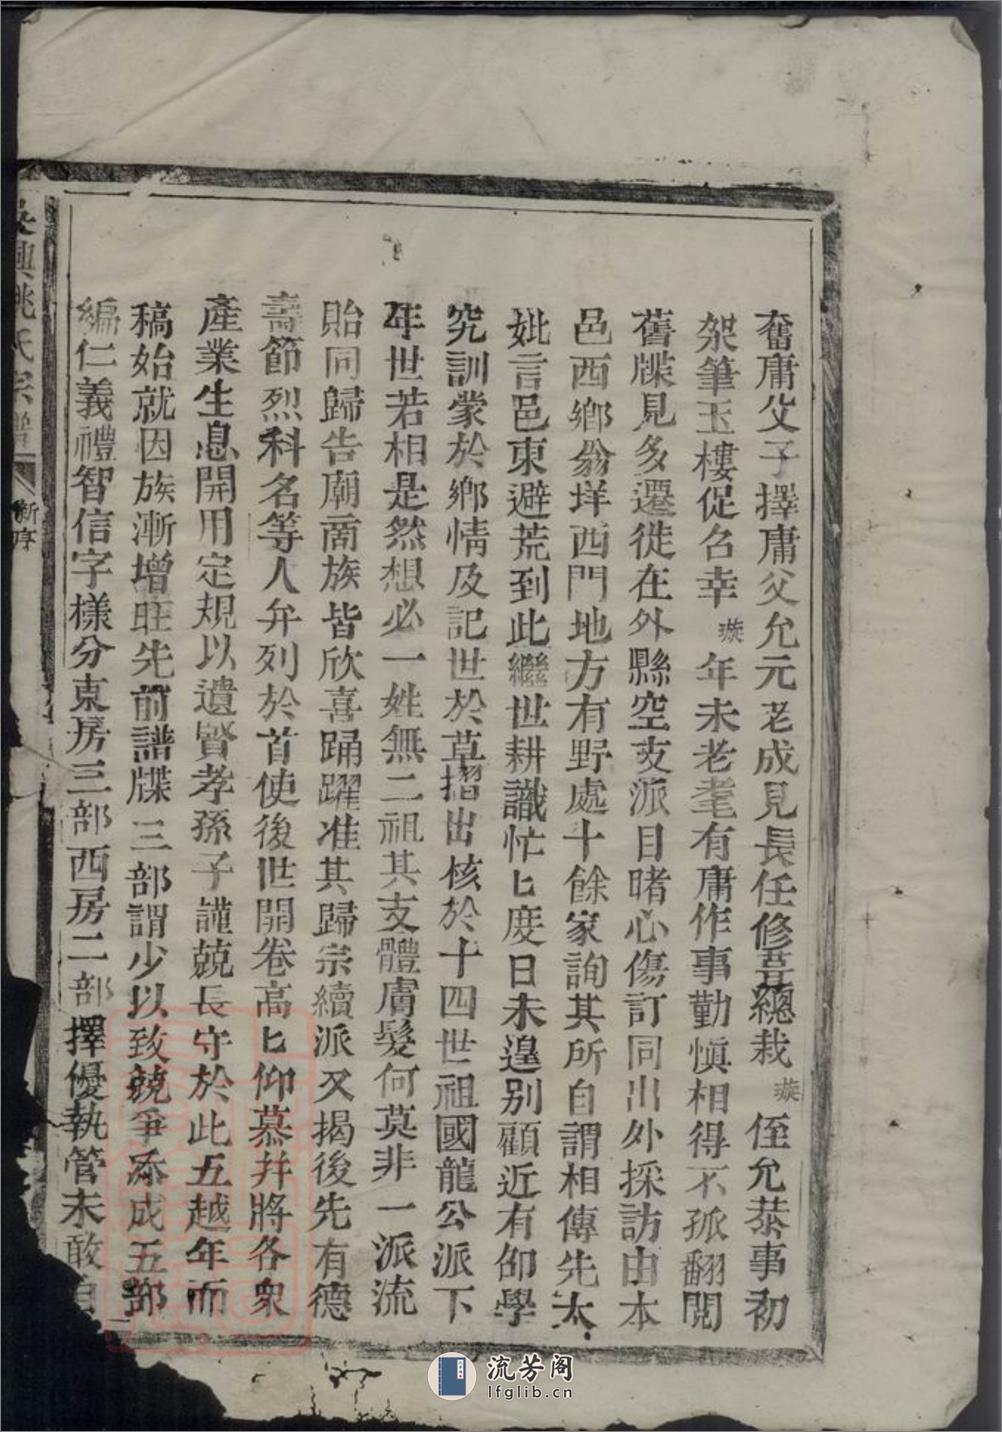 奮庸父子擇庸父允元老成見長任修葺總裁璇侄允恭事初
架筆玉樓促名幸璇年未老耄有庸作事勤慎相得不孤翻閱
舊牒見多遷徙在外縣空支派目睹心傷訂同出外採訪由本
邑西鄉翁垟西門地方有野處十餘家詢其所自謂相傳先太
妣言邑東避荒到此繼世耕識忙匕度日未遑別顧近有仰學
究訓蒙於鄉情及記世於草摺出核於十四世祖國龍公派下
年世若相是然想必一姓無二祖其支體膚髮何莫非一派流
貽同歸告廟啇族皆欣喜踊躍准其歸宗續派又揭後先有德
壽節烈科名等人弁列於首使後世開卷高匕仰慕幷將各衆
產業生息開用定規以遺賢孝孫子謹兢長守於此五越年而
稿始就因族漸增旺先前譜牒三部謂少以致競爭添成五部
編仁義禮智信字樣分東房三部西房二部擇優執管未敢自
吳興姚氏宗譜
新序
流芳阁
lfglib.cn